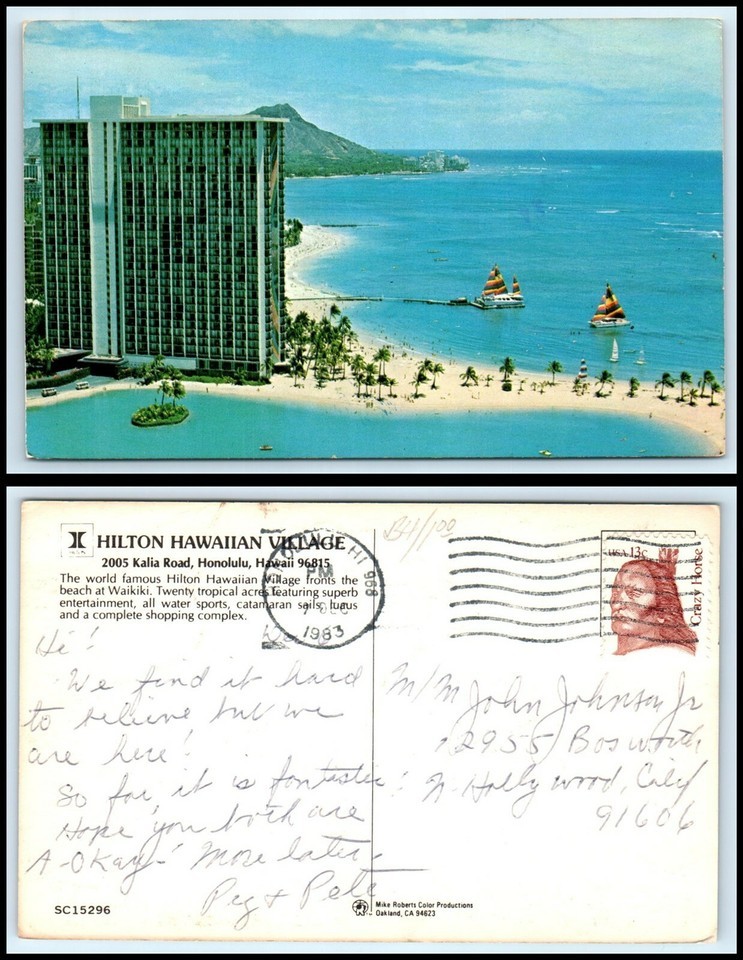 HILTON HAWAIIAN VILLAGE
2005 Kalia Road, Honolulu, Hawaii 96815
The world famous Hilton Hawaiian Village fronts the
beach at Waikiki. Twenty tropical acres featuring superb
entertainment, all water sports, catamaran sails, luaus
and a complete shopping complex.
HONOLULU HI 968
PM
7 DEC
1983
USA 13c
Crazy Horse
Hi!
We find it hard
to believe but we
are here!
So far, it is fantastic!
Hope you both are
A-Okay! More later,
Peg & Pete
M/M John Johnson Jr
12955 Bosworth
N. Hollywood, Calif
91606
SC15296
Mike Roberts Color Productions
Oakland, CA 94623